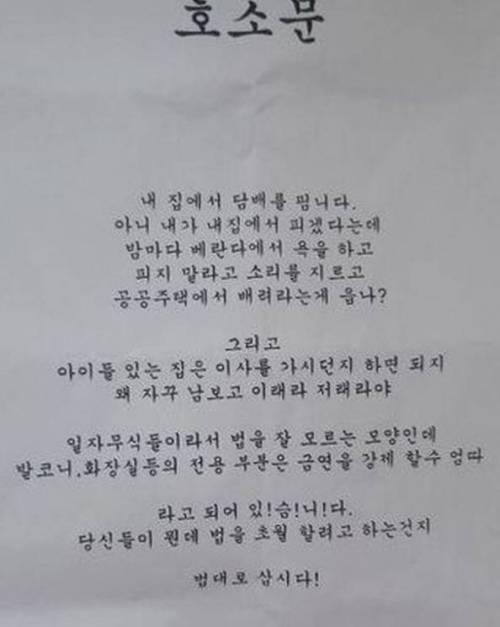 호소문
내 집에서 담배를 핍니다.
아니 내가 내집에서 피겠다는데
밤마다 베란다에서 욕을 하고
피지 말라고 소리를 지르고
공공주택에서 배려라는게 읍나?
그리고
아이들 있는 집은 이사를 가시던지 하면 되지
왜 자꾸 남보고 이래라 저래라야
일자무식들이라서 법을 잘 모르는 모양인데
발코니,화장실등의 전용 부분은 금연을 강제 할수 업따
라고 되어 있!습!니!다.
당신들이 뭔데 법을 초월 할려고 하는건지
법대로 삽시다!